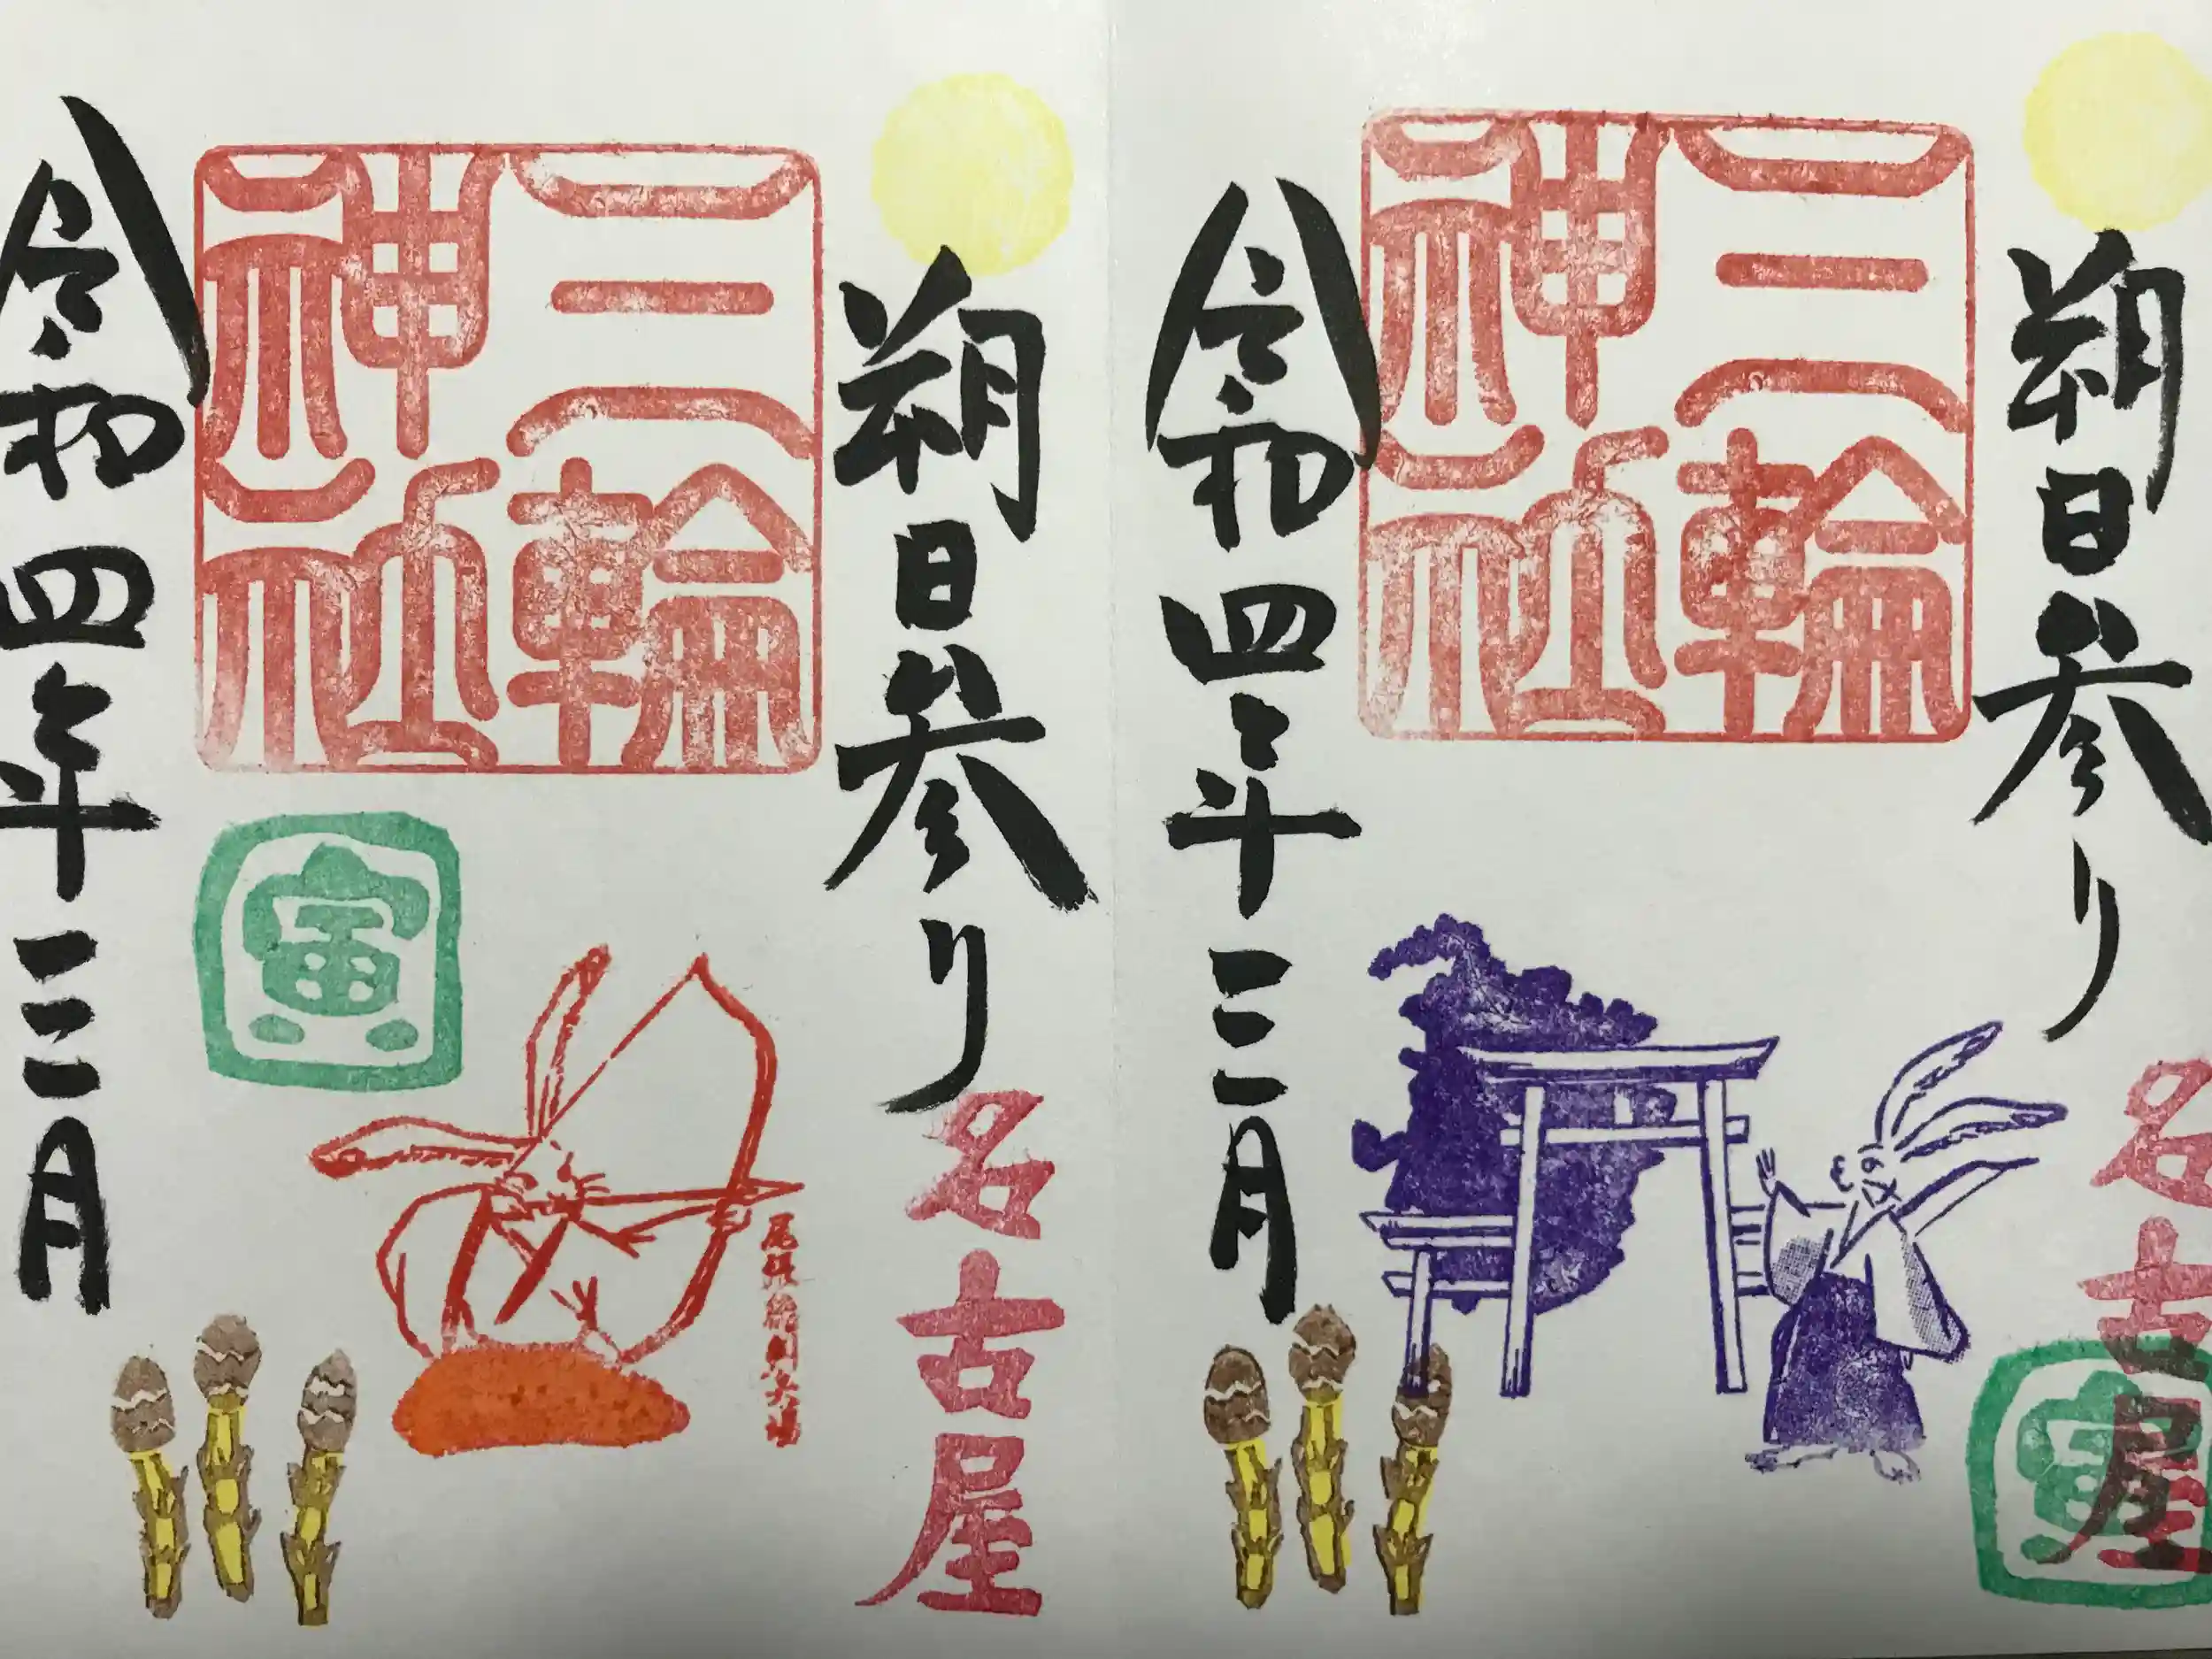 朔日参り
名古屋
三輪
神社
令和四年三月
寅
朔日参り
名古屋
三輪
神社
寅
令和四年三月